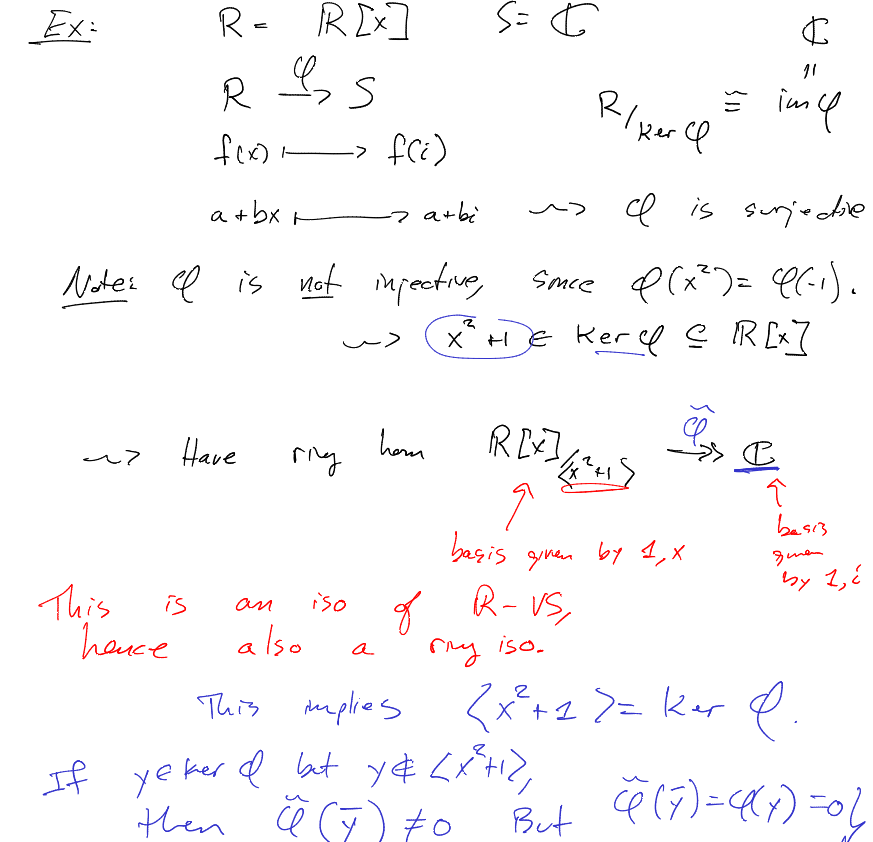 Ex: R = ℝ[x] S = ℂ ℂ
R —φ→ S =
R/ker φ ≅ im φ
f(x) ⟼ f(i)
a+bx ⟼ a+bi ⇝ φ is surjective
Note: φ is not injective, since φ(x²) = φ(-1).
⇝ x²+1 ∈ ker φ ⊆ ℝ[x]
⇝ Have ring hom ℝ[x]/⟨x²+1⟩ —φ̃↠ ℂ
basis given by 1, x
basis
given
by 1, i
This is an iso of ℝ-VS,
hence also a ring iso.
This implies ⟨x²+1⟩ = ker φ.
If y ∈ ker φ but y ∉ ⟨x²+1⟩,
then φ̃(ȳ) ≠ 0 But φ̃(ȳ) = φ(y) = 0 ↯